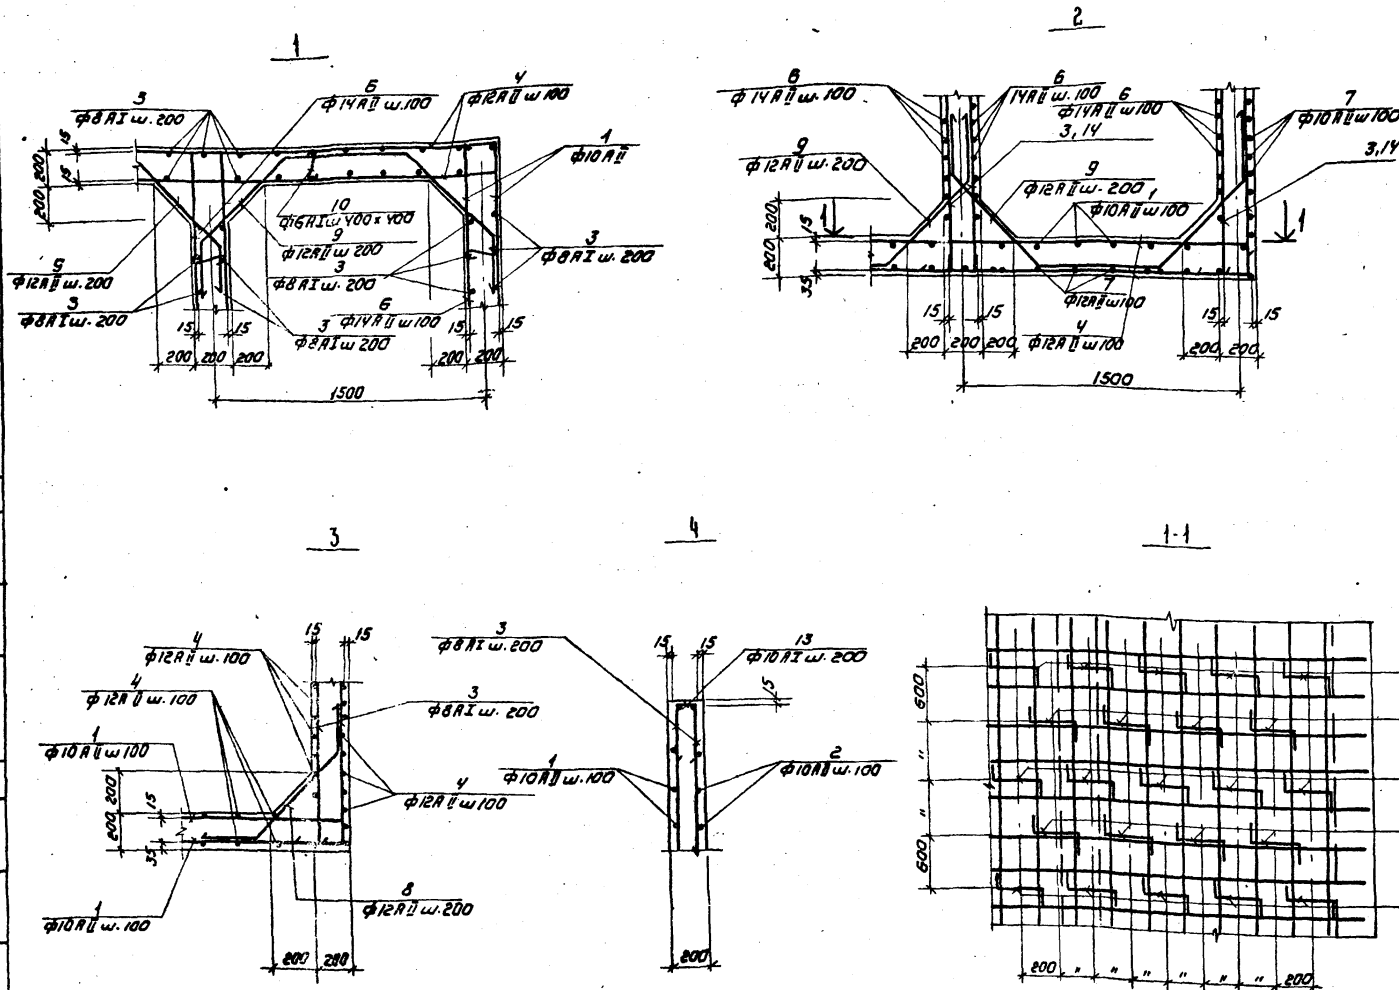 1
3
ф8АI ш. 200
6
ф14АII ш. 100
4
ф12АII ш 100
1
ф10АII
15
200
15
200
10
ф16АI ш 400×400
9
ф12АII ш 200
3
ф8АI ш. 200
3
ф8АI ш. 200
9
ф12АII ш. 200
3
ф8АI ш. 200
6
ф14АII ш 100
3
ф8АI ш 200
15
15
15
15
200
200
200
200
200
1500
2
8
ф14АII ш. 100
6
14АII ш. 100
6
ф14АII ш 100
7
ф10АII ш 100
3,14
3,14
9
ф12АII ш. 200
9
ф12АII ш. 200
1
ф10АII ш 100
1
1
200
15
200
35
7
ф12АII ш 100
4
ф12АII ш 100
15
15
15
15
200
200
200
200
200
1500
3
4
ф12АII ш. 100
15
15
4
ф12АII ш. 100
3
ф8АI ш. 200
1
ф10АII ш 100
200
15
200
35
4
ф12АII ш 100
8
ф12АII ш. 200
1
ф10АII ш. 100
200
200
4
3
ф8АI ш. 200
15
15
13
ф10АI ш. 200
15
1
ф10АII ш. 100
2
ф10АII ш. 100
200
1-1
600
"
"
600
200
"
"
"
"
"
"
200